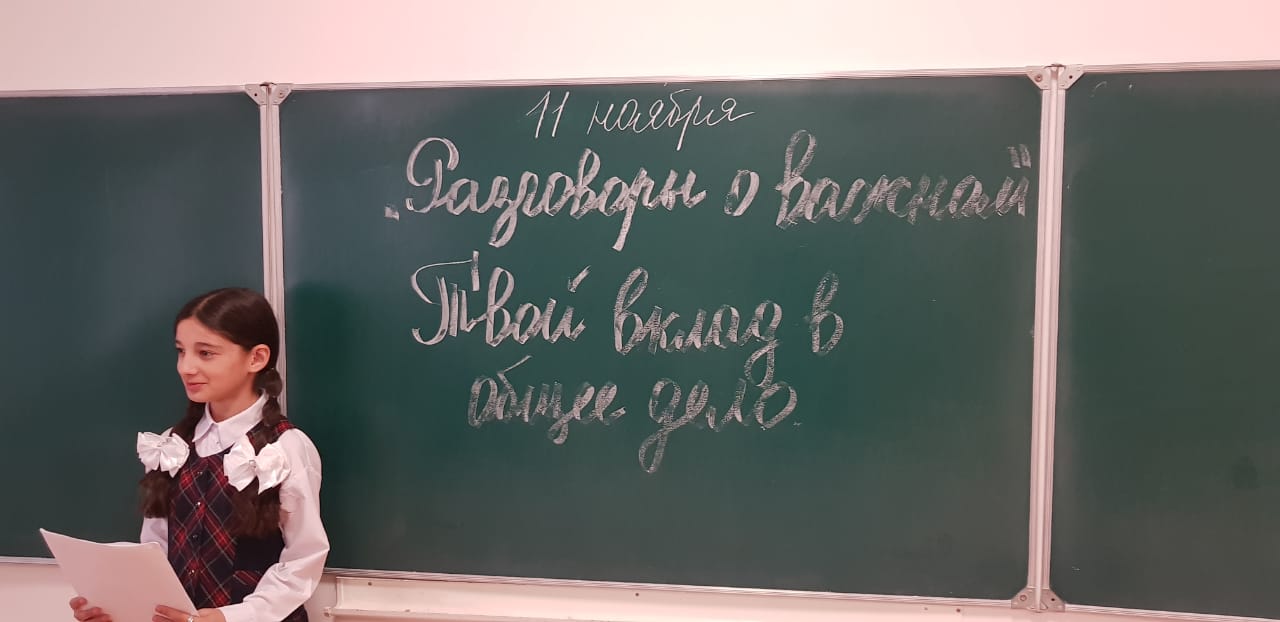 11 ноября
„Разговоры о важном"
Твой вклад в
общее дело.